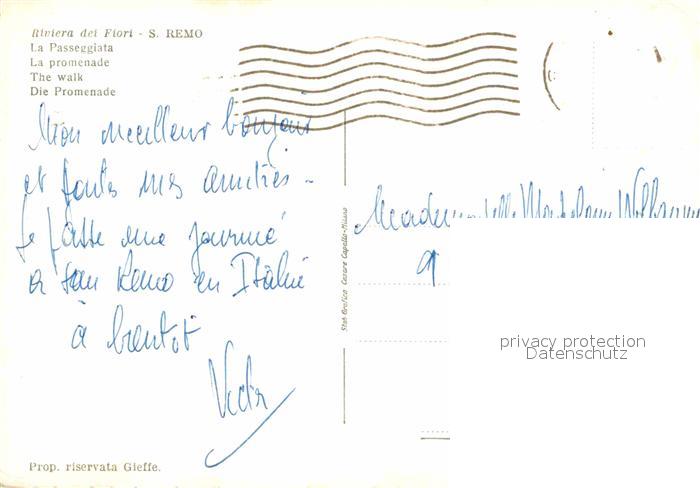 Riviera dei Fiori - S. REMO
La Passeggiata
La promenade
The walk
Die Promenade
Mon meilleur bonjour
et toutes mes amitiés -
Je passe une journée
à San Remo en Italie
à bientot
Stab. Grafico Cesare Capello - Milano
9
privacy protection
Datenschutz
Prop. riservata Gieffe.